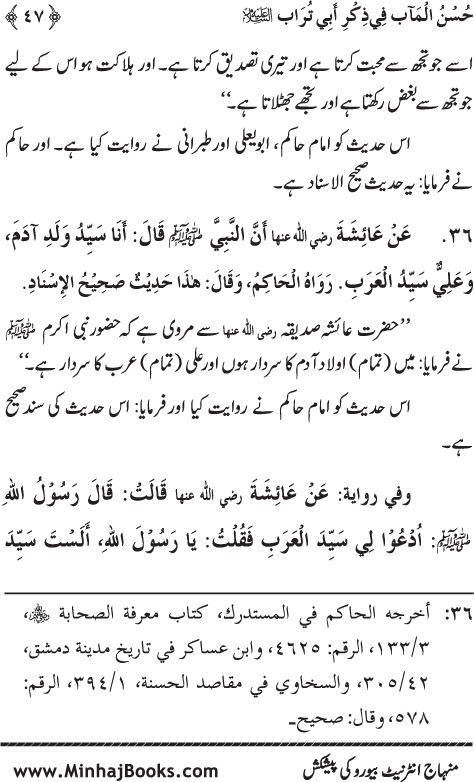 حُسْنُ الْمَآب فِي ذِكْرِ أَبِي تُرَاب علیہ السلام ﴿٤٧﴾
اسے جو تجھ سے محبت کرتا ہے اور تیری تصدیق کرتا ہے۔ اور ہلاکت ہو اس کے لیے
جو تجھ سے بغض رکھتا ہے اور تجھے جھٹلاتا ہے۔‘‘
اس حدیث کو امام حاکم، ابو یعلی اور طبرانی نے روایت کیا ہے۔ اور حاکم
نے فرمایا: یہ حدیث صحیح الاسناد ہے۔
٣٦. عَنْ عَائِشَةَ رضی اللہ عنہا أَنَّ النَّبِيَّ ﷺ قَالَ: أَنَا سَيِّدُ وَلَدِ آدَمَ،
وَعَلِيٌّ سَيِّدُ الْعَرَبِ. رَوَاهُ الْحَاكِمُ، وَقَالَ: هٰذَا حَدِيْثٌ صَحِيْحُ الإِسْنَادِ.
’’حضرت عائشہ صدیقہ رضی اللہ عنہا سے مروی ہے کہ حضور نبی اکرم ﷺ
نے فرمایا: میں (تمام) اولاد آدم کا سردار ہوں اور علی (تمام) عرب کا سردار ہے۔‘‘
اس حدیث کو امام حاکم نے روایت کیا اور فرمایا: اس حدیث کی سند صحیح
ہے۔
وفي رواية: عَنْ عَائِشَةَ رضی اللہ عنہا قَالَتْ: قَالَ رَسُوْلُ اللهِ
ﷺ: اُدْعُوْا لِي سَيِّدَ الْعَرَبِ فَقُلْتُ: يَا رَسُوْلَ اللهِ، أَلَسْتَ سَيِّدَ
٣٦: أخرجه الحاكم في المستدرك، كتاب معرفة الصحابة ﷺ،
٣/١٣٣، الرقم: ٤٦٢٥، وابن عساكر في تاريخ مدينة دمشق،
٤٢/٣٠٥، والسخاوي في مقاصد الحسنة، ١/٣٩٤، الرقم:
٥٧٨، وقال: صحيح۔
www.MinhajBooks.com منہاج انٹرنیٹ بیورو کی پیشکش